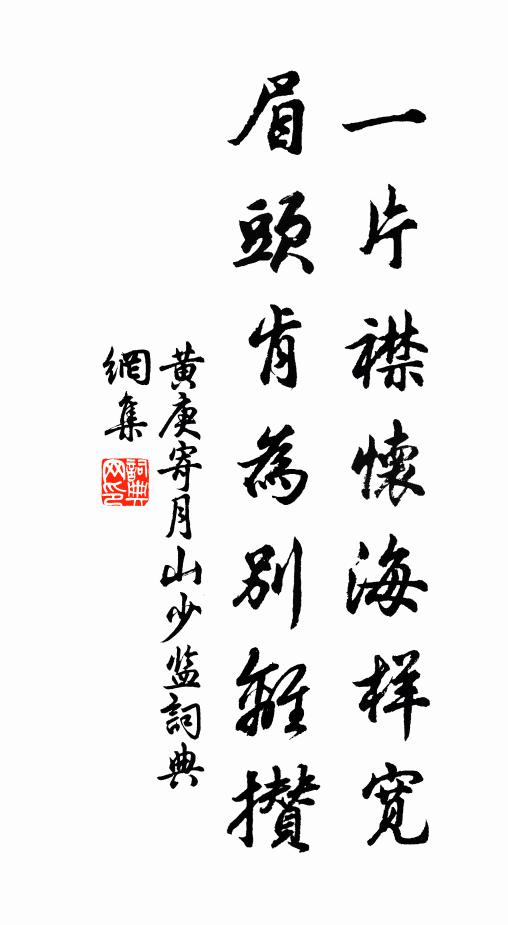 一片襟懷海样寬
眉頭肯為別離攢
黄庚寄月山少监詞典
網集
詞典
网印